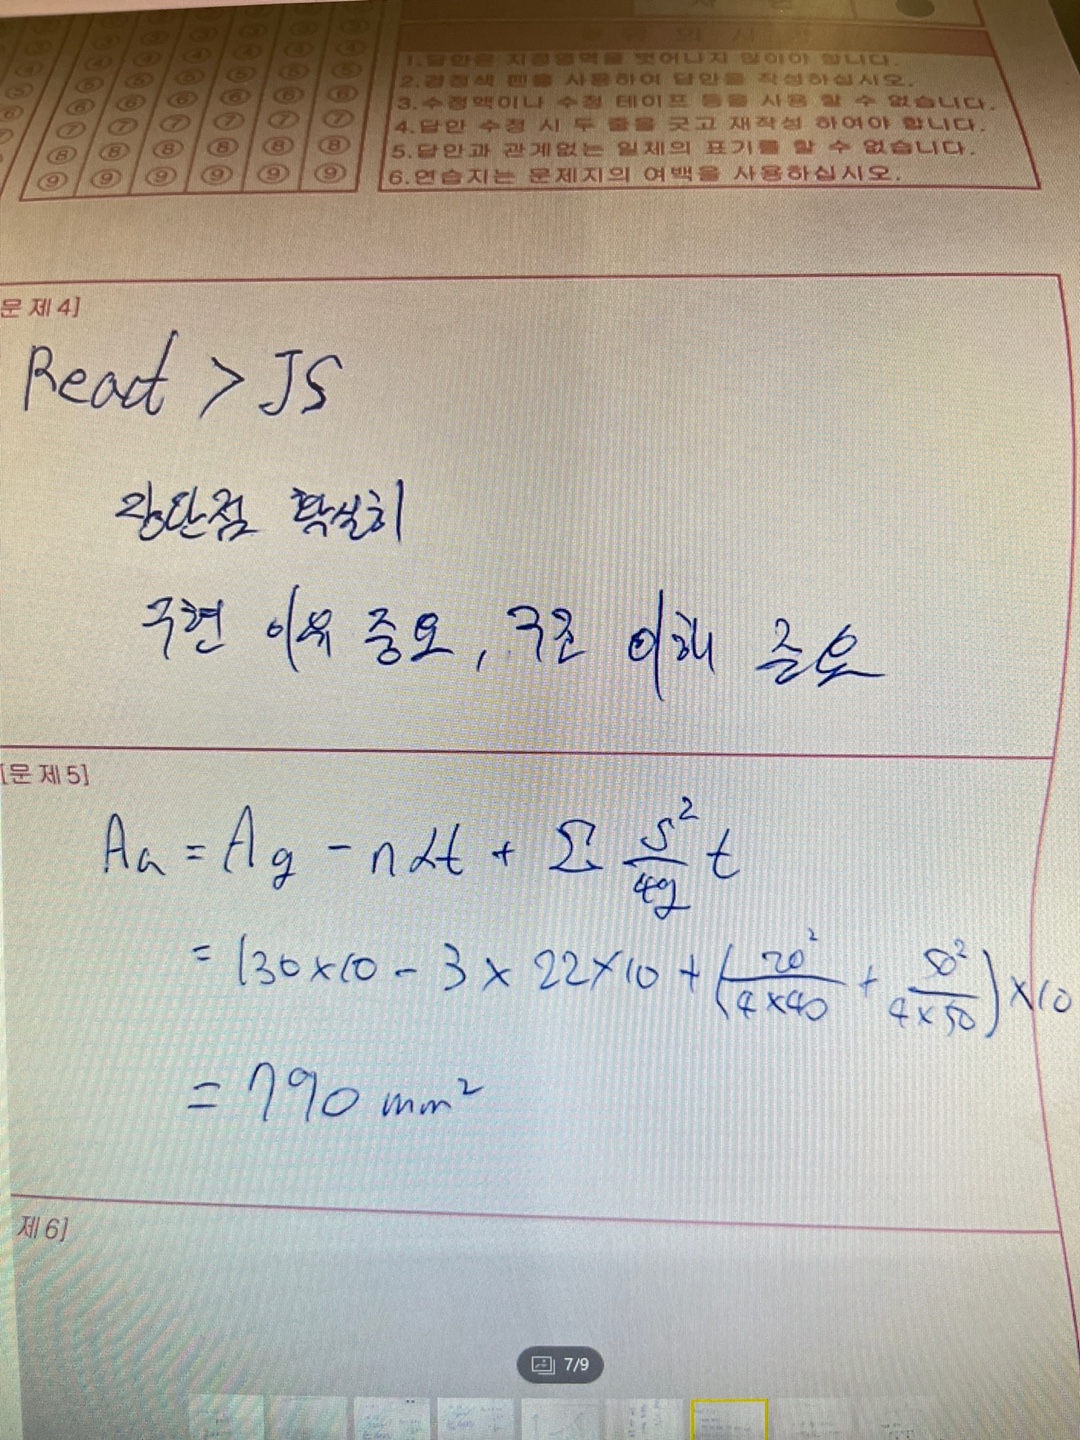 ③ ③ ③ ③ ③
④ ④ ④ ④ ④ ④
⑤ ⑤ ⑤ ⑤ ⑤ ⑤
⑥ ⑥ ⑥ ⑥ ⑥ ⑥
⑦ ⑦ ⑦ ⑦ ⑦ ⑦
⑧ ⑧ ⑧ ⑧ ⑧ ⑧
⑨ ⑨ ⑨ ⑨ ⑨ ⑨
1.답안은 지정영역을 벗어나지 않아야 합니다.
2.검정색 펜을 사용하여 답안을 작성하십시오.
3.수정액이나 수정 테이프 등을 사용 할 수 없습니다.
4.답안 수정 시 두 줄을 긋고 재작성 하여야 합니다.
5.답안과 관계없는 일체의 표기를 할 수 없습니다.
6.연습지는 문제지의 여백을 사용하십시오.
문 제4]
React > JS
장단점 확실히
구현 이유 중요, 구조 이해 중요
[문 제5]
An = Ag - ndt + Σ s²/4g t
= 130×10 - 3 × 22×10 + (20²/4×40 + 50²/4×50)×10
= 790 mm²
제6]
7/9